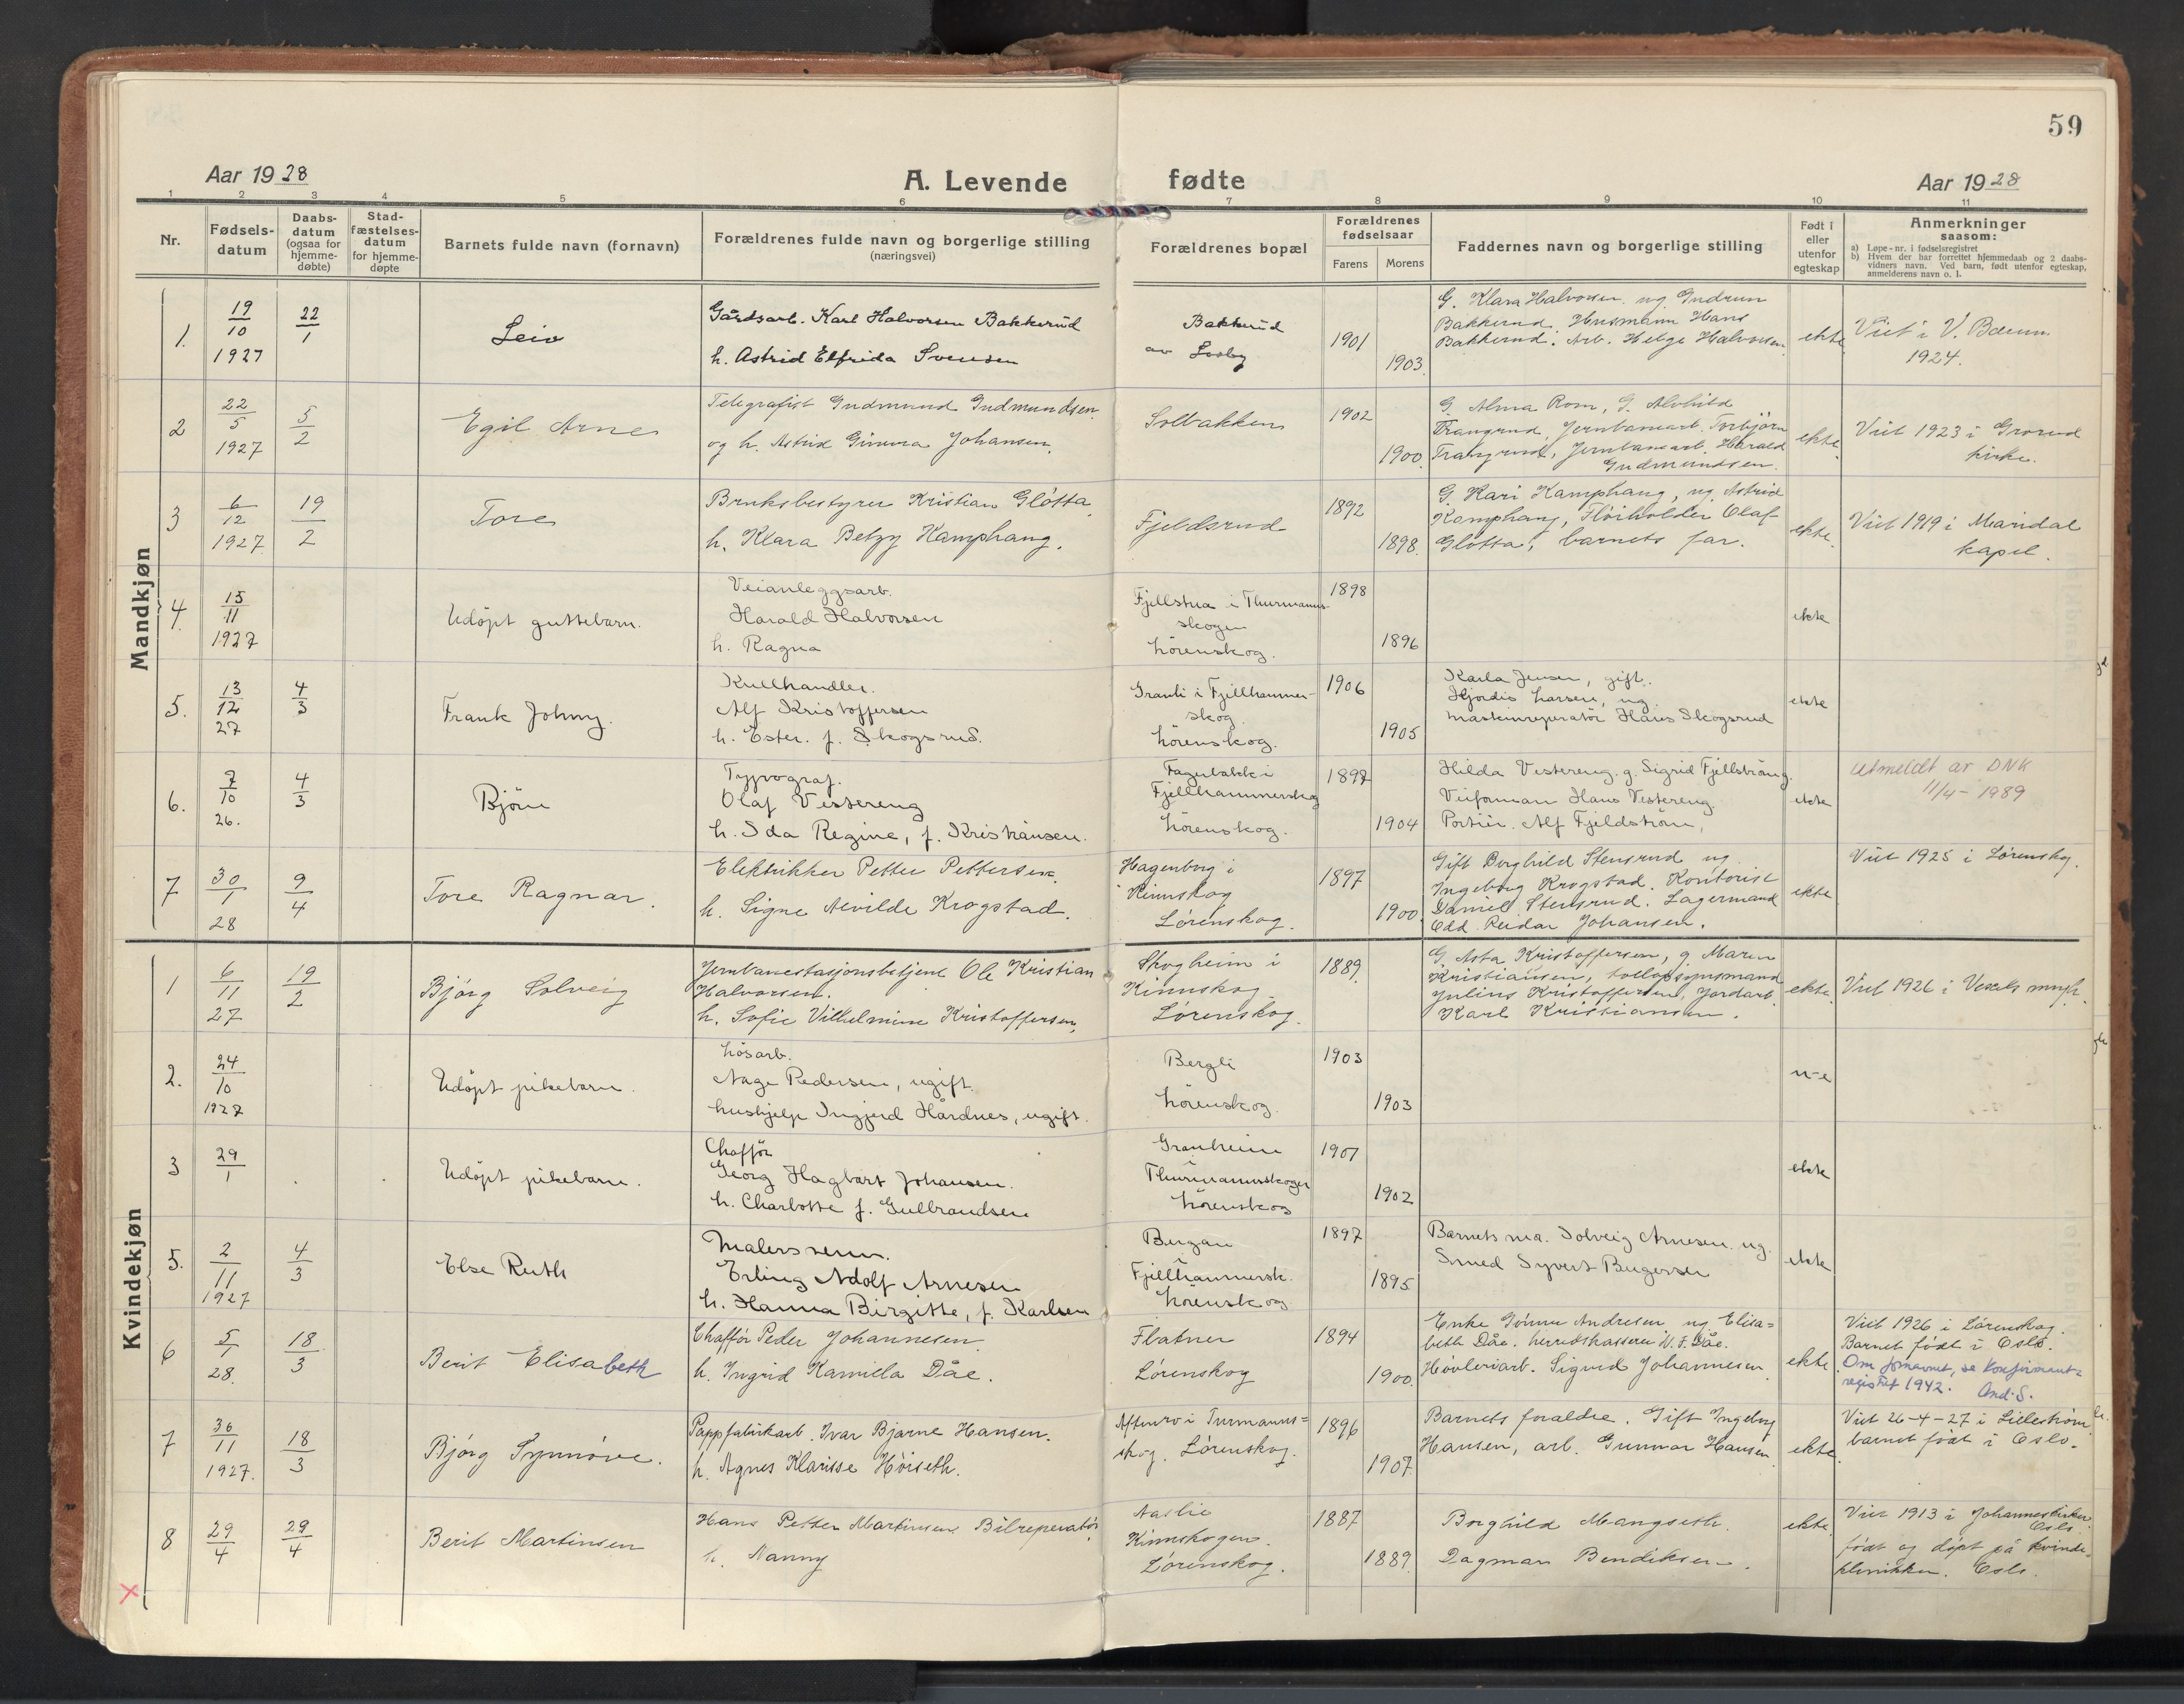 59
Aar 1928
A. Levende fødte
Aar 1928
1 2 3 4 5 6 7 8 9 10 11
Nr.
Fødsels-
datum
Daabs-
datum
(ogsaa for
hjemme-
døbte)
Stad-
fæstelses-
datum
for hjemme-
døpte
Barnets fulde navn (fornavn)
Forældrenes fulde navn og borgerlige stilling
(næringsvei)
Forældrenes bopæl
Forældrenes
fødselsaar
Farens Morens
Faddernes navn og borgerlige stilling
Født i
eller
utenfor
egteskap
Anmerkninger
saasom:
a) Løpe-nr. i fødselsregistret
b) Hvem der har forrettet hjemmedaab og 2 daabs-
vidners navn. Ved barn, født utenfor egteskap,
anmelderens navn o. l.
Mandkjøn
1.
19/10
1927
22/1
Leiv
Gårdsarb. Karl Halvorsen Bakkerud
h. Astrid Elfrida Svensen
Bakkerud
av Losby
1901
1903.
G. Klara Halvorsen ug. Gudrun
Bakkerud. Husmann Hans
Bakkerud. Arb. Helge Halvorsen
ekte.
Viet i V. Bærum
1924.
2
22/5
1927
5/2
Egil Arne
Telegrafist Gudmund Gudmundsen
og h. Astrid Johansen.
Solbakken
1902
1900.
G. Alma Rom, G. Alvhild
Trangrud, Jernbanearb. Torbjørn
Trangrud, Jernbanearb. Harald
Gudmundsen.
ekte.
Viet 1923 i Grorud
kirke.
3
6/12
1927
19/2
Tore
Bruksbestyrer Kristian Gløtta,
h. Klara Betzy Kamphaug.
Fjeldsrud
1892
1898.
G. Kari Kamphaug, ug. Astrid
Kamphaug, Olaf
Gløtta, barnets far.
ekte.
Viet 1919 i Maridal
kapel.
4.
15/11
1927
Udøpt guttebarn.
Veianleggsarb.
Harald Halvorsen
h. Ragna
Fjellstua i Thurmanns-
skogen
Lørenskog.
1898
1896
ekte
5.
13/12
27
4/3
Frank Johny.
Kullhandler.
Alf Kristoffersen
h. Ester. f. Skogsrud.
Granli i Fjellhammer-
skog.
Lørenskog.
1906
1905
Karla Jensen, gift.
Hjørdis Larsen, ug.
maskinreperatør Hans Skogsrud
ekte
6.
7/10
26.
4/3
Bjørn
Typograf.
Olaf Vestereng
h. Ida Regine, f. Kristiansen.
Fagerbakk i
Fjellhammerskog
Lørenskog.
1897
1904
Hilda Vestereng. g. Sigrid Fjellstrøm g.
Veiformann Hans Vestereng.
Portier. Alf Fjeldstrøm,
ekte
Utmeldt av DNK
11/4 - 1989
7
30/1
28
9/4
Tore Ragnar.
Elektrikker Petter Pettersen.
h. Signe Alvilde Krogstad.
Hagenborg i
Kinnskog
Lørenskog.
1897
1900.
Gift Borghild Stensrud ug.
Ingeborg Krogstad. Kontorist
Daniel Stensrud. Lagermand
Odd Reidar Johansen.
ekte
Viet 1925 i Lørenskog.
Kvindekjøn
1
6/11
27
19/2
Bjørg Solveig
Jernbanestasjonsbetjent Ole Kristian
Halvorsen.
h. Sofie Vilhelmine Kristoffersen,
Skogheim i
Kinnskog
Lørenskog.
1889
G. Asta Kristoffersen, g. Maren
Kristiansen, tollopsynsmand
Julius Kristoffersen, Jordarb.
Karl Kristiansen.
ekte.
Viet 1926 i
2.
24/10
1927
Udøpt pikebarn.
Løsarb.
Aage Pedersen, ugift.
hushjelp Ingjerd Hårdnes, ugift.
Bergli
Lørenskog.
1903
1903
u-e
3
29/1
Udøpt pikebarn.
Chaffør
Georg Hagbart Johansen.
h. Charlotte f. Gulbrandsen
Granheim
i
Thurmannskogen
Lørenskog
1901
1902
ekte
5.
2/11
1927
4/3
Else Ruth
Malersvenn.
Erling Adolf Arnesen
h. Hanna Birgitte, f. Karlsen
Bergan
i
Fjellhammersk.
Lørenskog
1897
1895
Barnets ma. Solveig Arnesen. ug.
Smed Syvert Birgersen
ekte
6
5/1
28.
18/3
Berit Elisabeth
Chaffør Peder Johannesen
h. Ingrid Kamilla Dåe.
Flatner
Lørenskog
1894
1900.
Enke Gønna Andresen, ug. Elisa=
beth Dåe. herredskasserer W. F. Dåe.
Høvleriarb. Sigurd Johannesen
ekte
Viet 1926 i Lørenskog.
Barnet født i Oslo.
Om fornavnet, se konfirmant-
registret 1942. And. S.
7
30/11
1927.
18/3
Bjørg Synnøve.
Pappfabrikarb. Ivar Bjarne Hansen.
h. Agnes Klarisse Høiseth.
Aftenro i Turmanns=
skog. Lørenskog.
1896
1907.
Barnets foraldre. Gift Ingeborg
Hansen, arb. Gunnar Hansen.
ekte.
Viet 26-4-27 i Lillestrøm
barnet født i Oslo.
8
29/4
29/4
Berit Martinsen
Hans Petter Martinsen Bilreperatør
h. Nanny
Aaslie
Kinnskogen.
Lørenskog.
1887
1889.
Borghild Mangseth.
Dagmar Bendiksen.
ekte.
Viet 1913 i Johanneskirken
Oslo.
født og døpt på kvinde=
klinikken. Oslo.
x